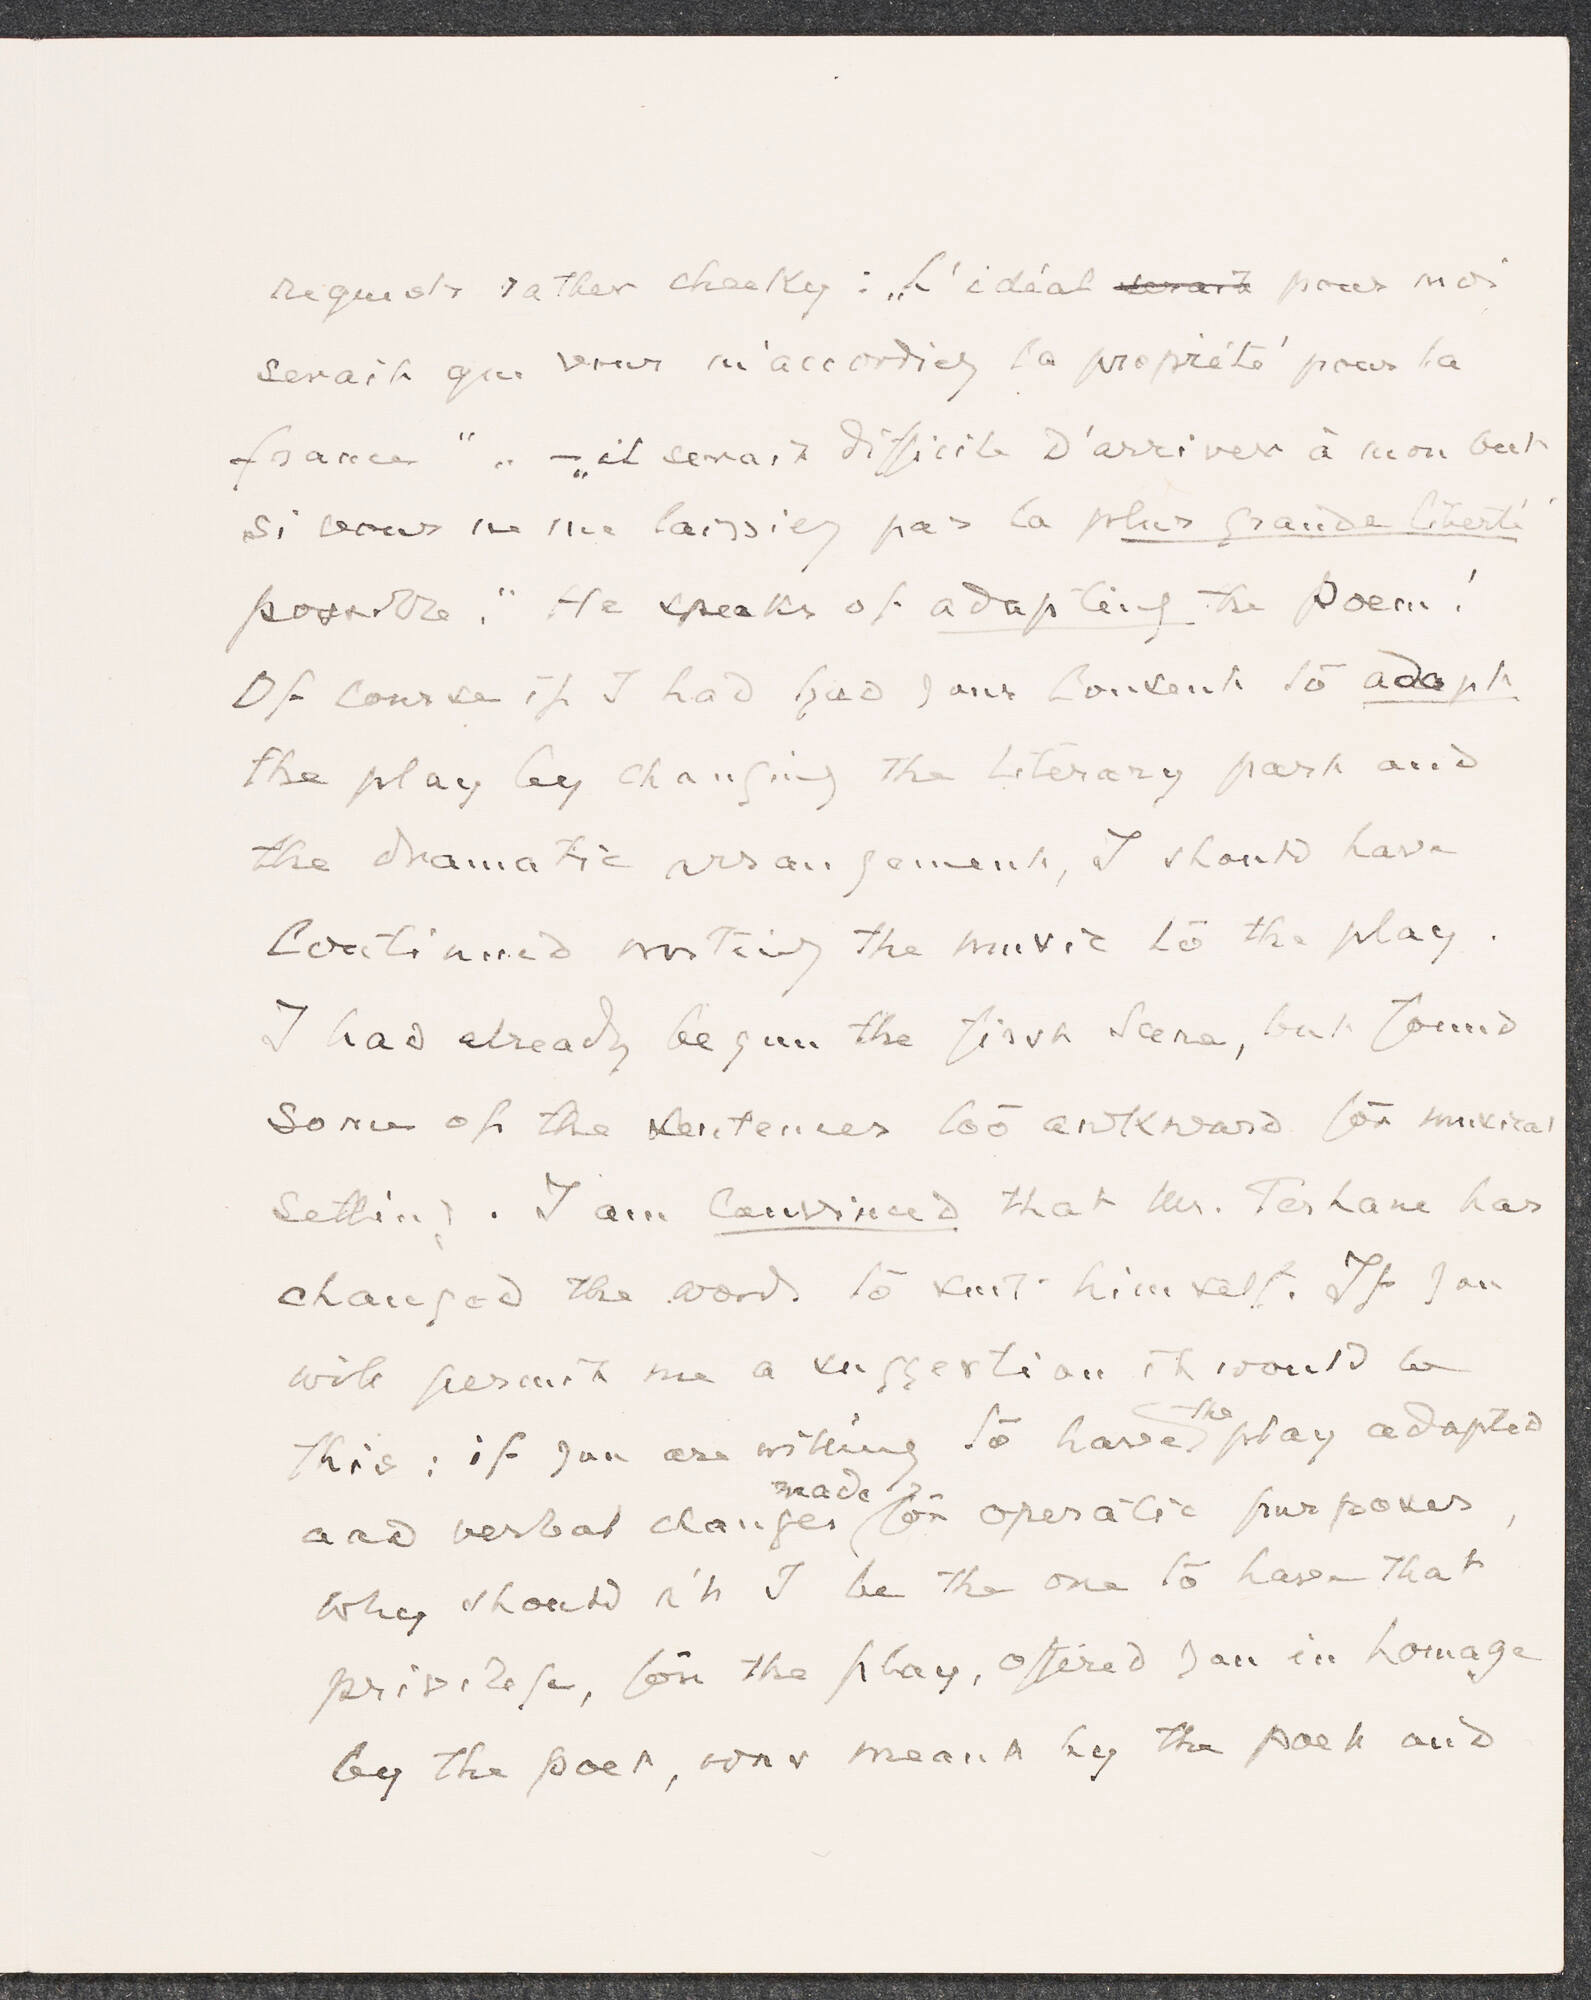 requests rather cheeky : „L'idéal ~~serait~~ pour moi
serait que vous m'accordiez la propriété pour la
france" „ – „il serait difficile d'arriver à mon but
si vous ne me laissiez pas la plus grande liberté
possible." He speaks of adapting the Poem!
Of course if I had had your consent to adapt
the play by changing the literary part and
the dramatic arrangement, I should have
continued writing the music to the play.
I had already begun the first scene, but found
some of the sentences too awkward for musical
setting. I am convinced that Mr. Terhane has
changed the words to suit himself. If you
will permit me a suggestion it would be
this: if you are willing to have the play adapted
and verbal changes made for operatic purposes,
why should n't I be the one to have that
privilege, for the play, offered you in homage
by the poet, was meant by the poet and